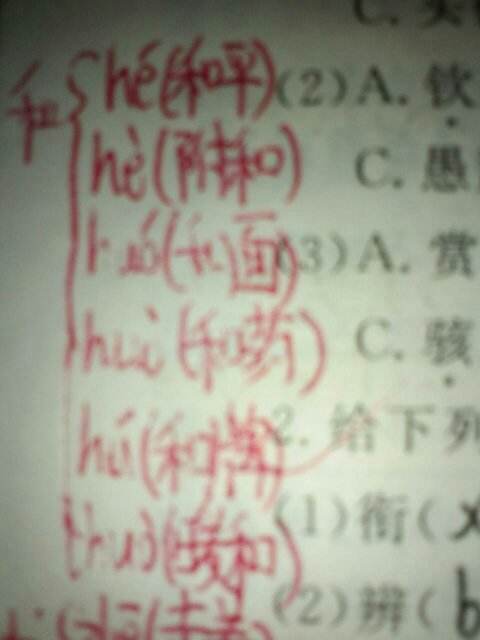 C.
和 hé(和平) (2)A.钦
hè(附和) C.愚
huó(和面) (3)A.赏
huò(和药) C.骇
hú(和牌) 2.给下列
huo(暖和) (1)衔(x
(2)辨(b